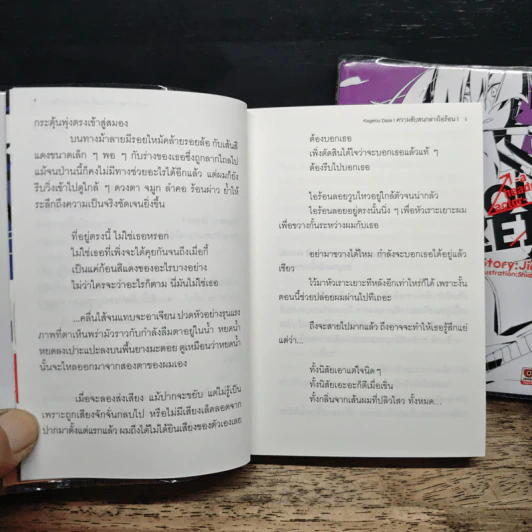 กระตุ้นพุ่งตรงเข้าสู่สมอง
บนทางม้าลายมีรอยไหม้คล้ายรอยล้อ กับเส้นสี
แดงขนาดเล็ก ๆ พอ ๆ กับร่างของเธอซึ่งถูกลากไถลไป
แม้จะผ่านนี้ก็คงไม่มีทางช่วยอะไรได้อีกแล้ว แต่ผมก็ยัง
รีบวิ่งเข้าไปดูใกล้ ๆ ดวงตา จมูก ลำคอ ร้อนผ่าว ย้ำให้
ระลึกถึงความเป็นจริงชัดเจนยิ่งขึ้น
ที่อยู่ตรงนี้ ไม่ใช่เธอหรอก
ไม่ใช่เธอที่เพิ่งจะได้คุยกันจนถึงเมื่อกี้
เป็นแค่ก้อนสีแดงของอะไรบางอย่าง
ไม่ว่าใครจะว่าอะไรก็ตาม นี่มันไม่ใช่เธอ
...คลื่นไส้จนแทบจะอาเจียน ปวดหัวอย่างรุนแรง
ภาพที่ตาเห็นพร่ามัวราวกับกำลังลืมตาอยู่ในน้ำ หยดน้ำ
หยดลงเปาะแปะลงบนพื้นยางมะตอย ดูเหมือนว่าหยดน้ำ
นั้นจะไหลออกมาจากสองตาของผมเอง
เมื่อจะลองส่งเสียง แม้ปากจะขยับ แต่ไม่รู้เป็น
เพราะถูกเสียงจักจั่นกลบไป หรือไม่มีเสียงเล็ดลอดจาก
ปากมาตั้งแต่แรกแล้ว ผมถึงได้ไม่ได้ยินเสียงของตัวเองเลย
Kagerou Daze I ความสับสนกลางไอร้อน I
ต้องบอกเธอ
เพิ่งตัดสินใจได้ว่าจะบอกเธอแล้วแท้ ๆ
ต้องรีบไปบอกเธอ
ไอร้อนลอยวูบไหวอยู่ใกล้ตัวจนน่ากลัว
ไอร้อนลอยอยู่ตรงนั้นนิ่ง ๆ เพื่อหัวเราะเยาะผม
เพื่อขวางกั้นระหว่างผมกับเธอ
อย่ามาขวางได้ไหม กำลังจะบอกเธอได้อยู่แล้ว
เชียว
ไว้มาหัวเราะเยาะทีหลังอีกเท่าไหร่ก็ได้ เพราะงั้น
ตอนนี้ช่วยปล่อยผมผ่านไปทีเถอะ
ถึงจะสายไปมากแล้ว ถึงอาจจะทำให้เธอรู้สึกแย่
แต่ว่า...
ทั้งนิสัยเอาแต่ใจนิด ๆ
ทั้งนิสัยเยอะอะก็ดีเมื่อเขิน
ทั้งกลิ่นจากเส้นผมที่ปลิวไสว ทั้งหมด...
Story:Ji